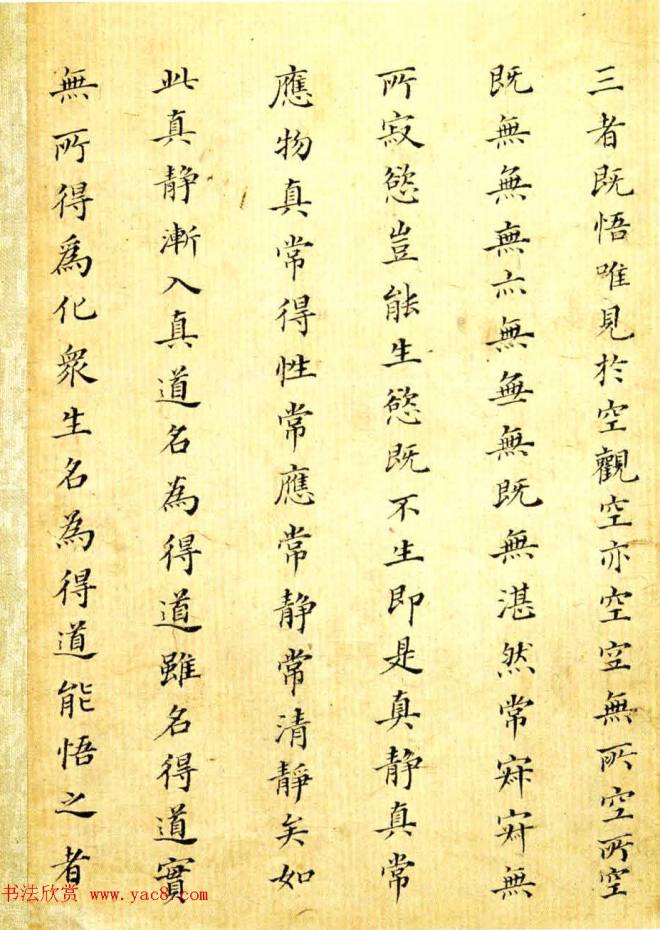 三者既悟唯見於空觀空亦空空無所空所空
既無無無亦無無無既無湛然常寂寂無
所寂慾豈能生慾既不生即是真静真常
應物真常得性常應常静常清静矣如
此真静漸入真道名為得道雖名得道實
無所得爲化衆生名為得道能悟之者
书法欣赏 www.yac8.com